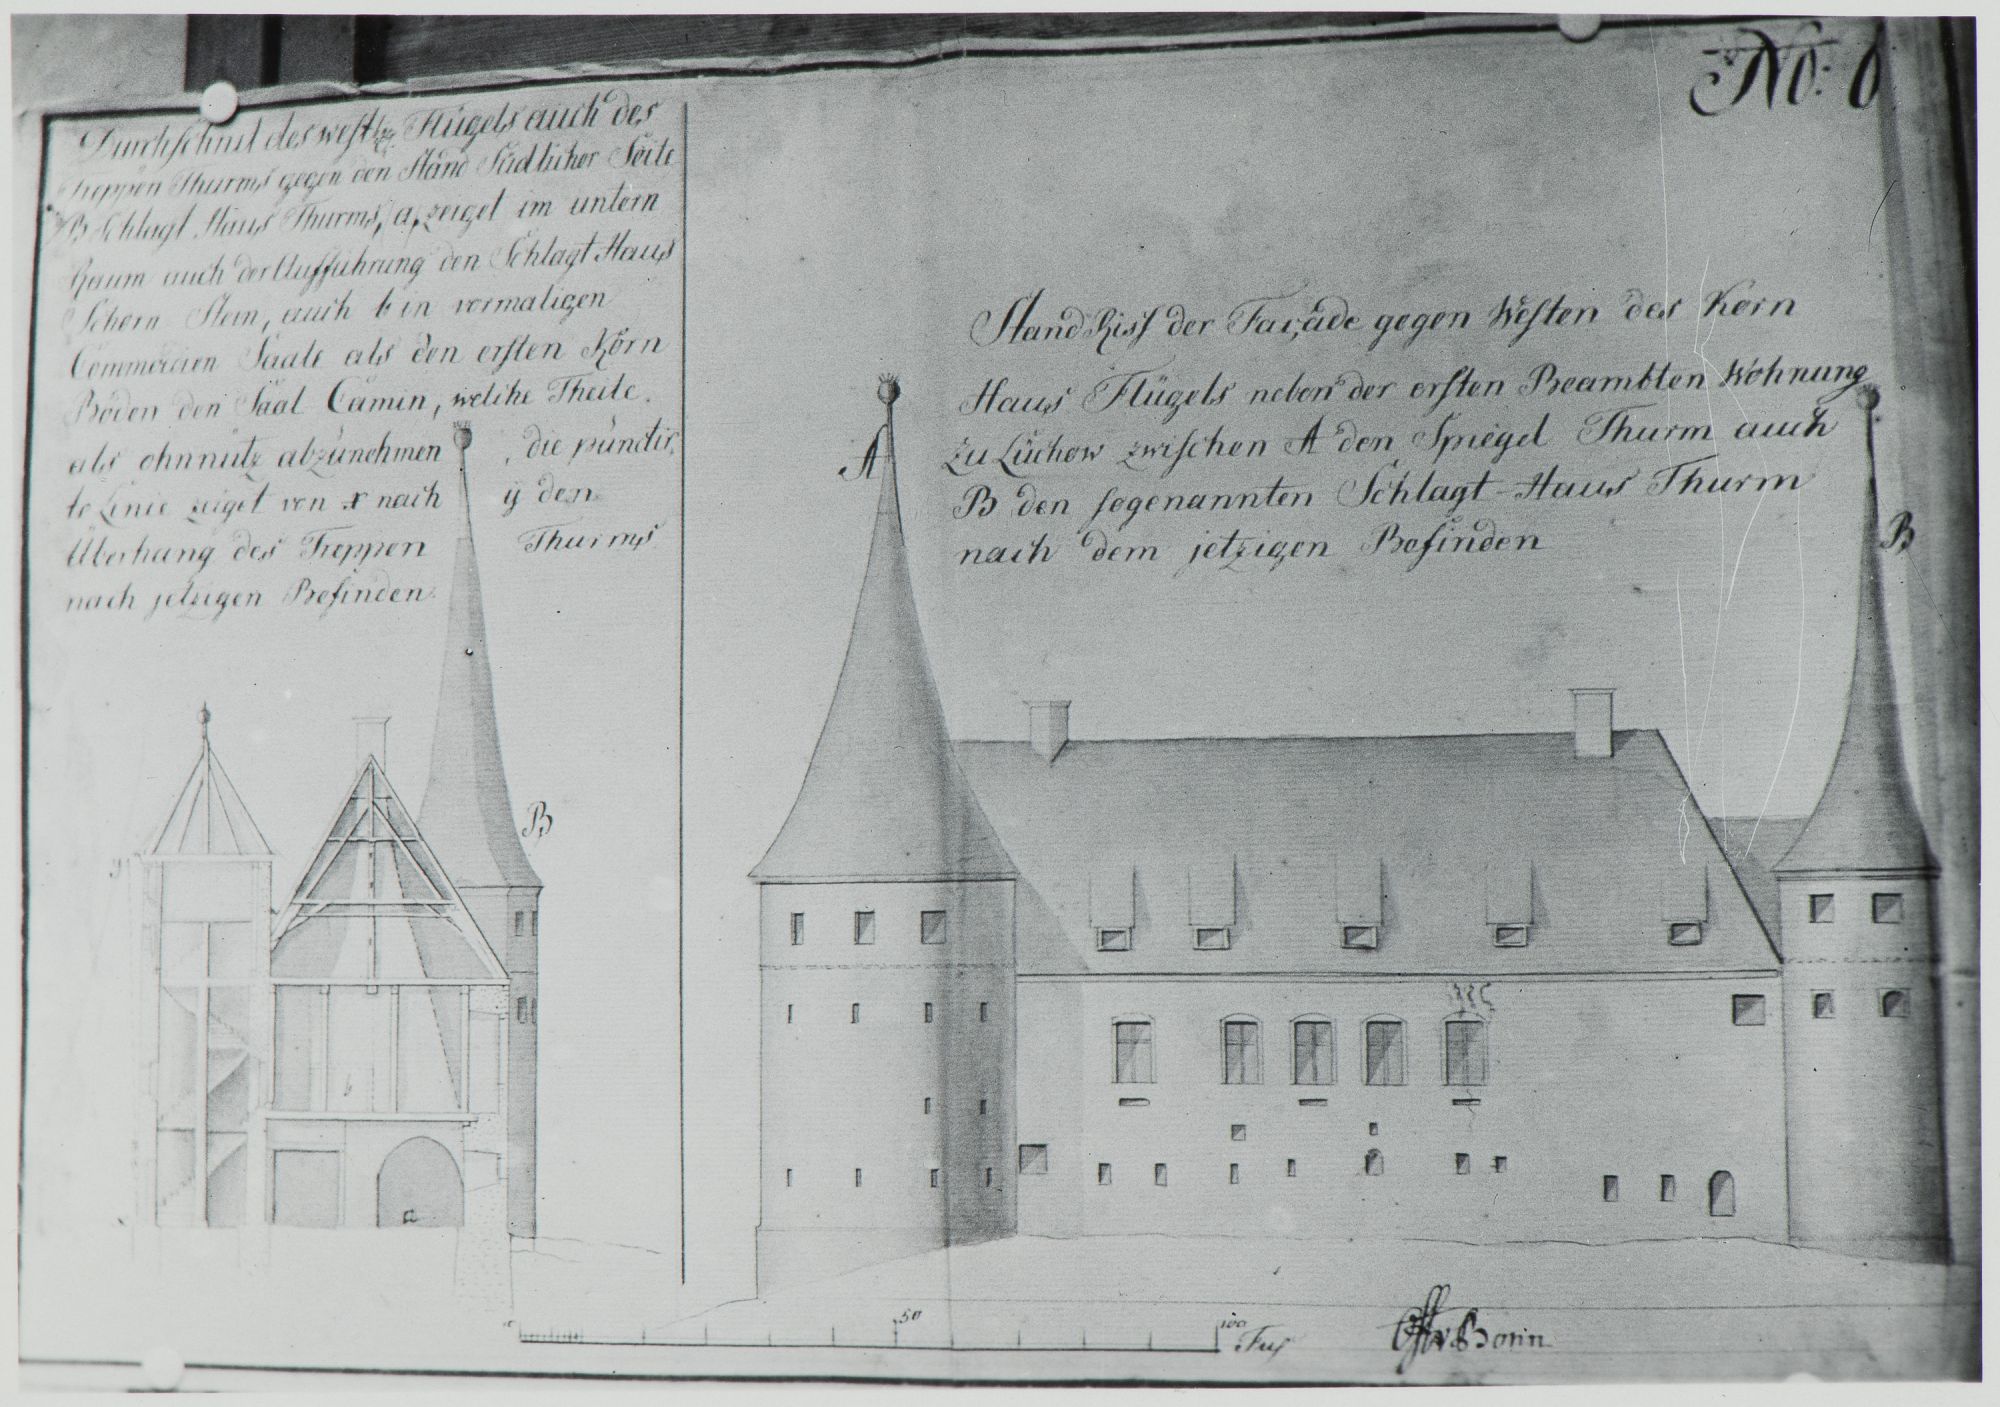 No: 6
Durchschnit des westl: Flügels auch des
Treppen Thurms gegen den Stand Südlicher Seite
B Schlagt Haus Thurms, a, zeiget im untern
Raum auch der Aufführung den Schlagt Haus
Schorn Stein, auch b in vormaligen
Commercien Saale als den ersten Korn
Boden den Saal Camin, welche Theile
als ohnnütz abzunehmen, die punctir,
te Linie zeiget von x nach y den
Überhang des Treppen Thurms
nach jetzigen Befinden.
Stand Riss der Façade gegen Westen des Korn
Haus Flügels neben der ersten Beambten Wohnung
zu Lüchow zwischen A den Spiegel Thurm auch
B den sogenannten Schlagt-Haus Thurm
nach dem jetzigen Befinden
A
B
B
y
b
a
50
100
Fus
Bonn